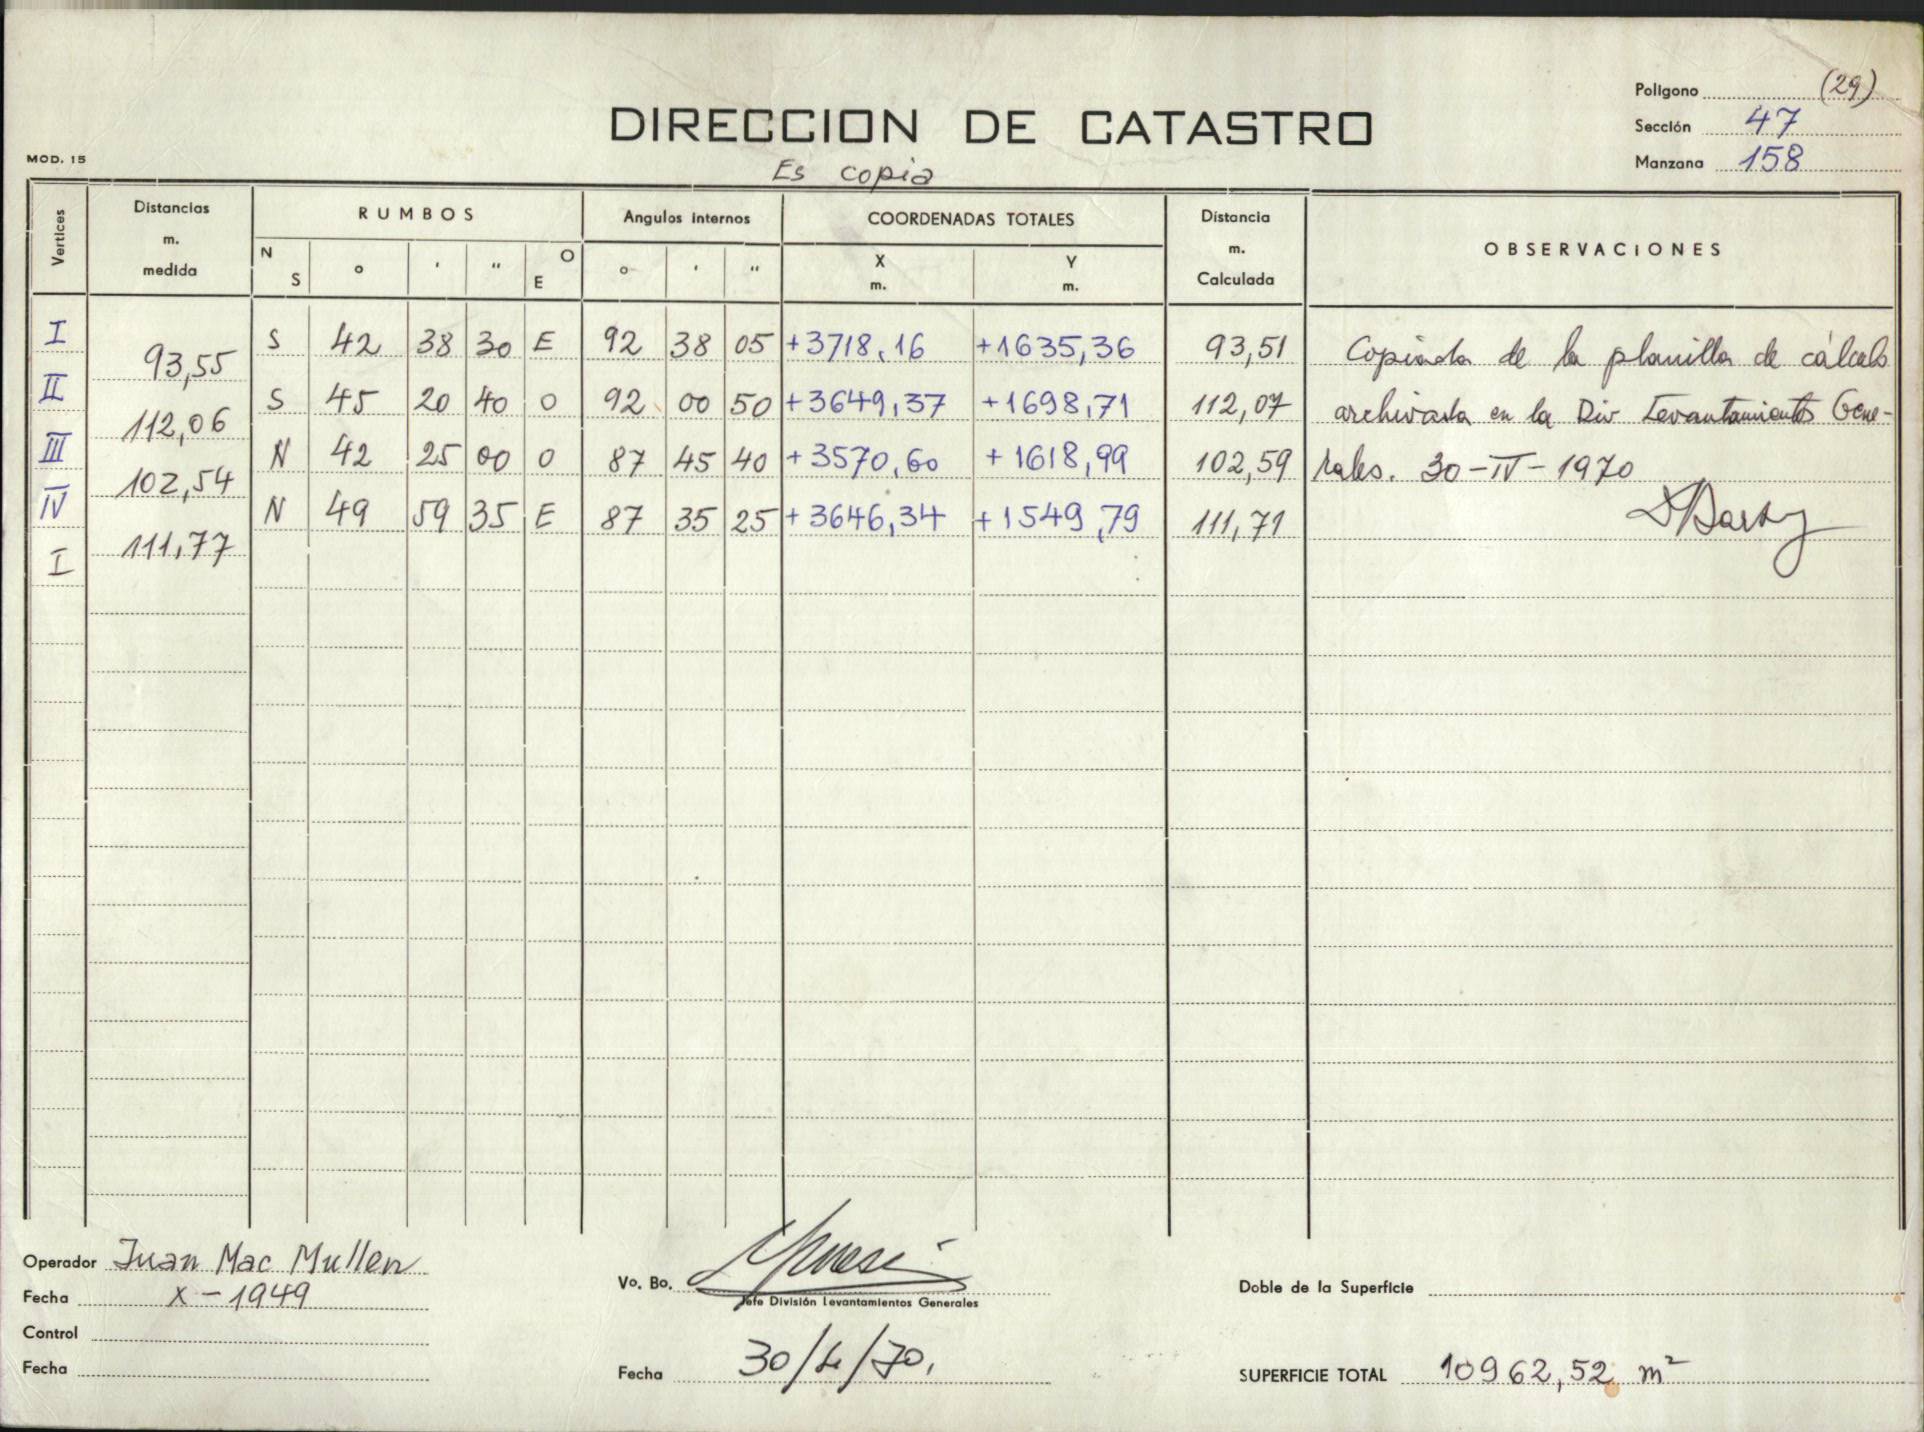 Poligono (29)
DIRECCION DE CATASTRO
Sección 47
MOD. 15
Manzana 158
Es copia
Vertices
Distancias m. medida
RUMBOS
Angulos internos
COORDENADAS TOTALES
Distancia m. Calculada
OBSERVACIONES
N S o ' " O E o ' " X m. Y m.
I S 42 38 30 E 92 38 05 +3718,16 +1635,36 93,51 Copiada de la planilla de cálculo
93,55
II S 45 20 40 O 92 00 50 +3649,37 +1698,71 112,07 archivada en la Div Levantamientos Gene-
112,06
III N 42 25 00 O 87 45 40 +3570,60 +1618,99 102,59 rales. 30-IV-1970
102,54
IV N 49 59 35 E 87 35 25 +3646,34 +1549,79 111,71
111,77
I
Operador Juan Mac Mullen
Fecha X-1949
Control
Fecha
Vo. Bo.
Jefe División Levantamientos Generales
Fecha 30/4/70.
Doble de la Superficie
SUPERFICIE TOTAL 10962,52 m²